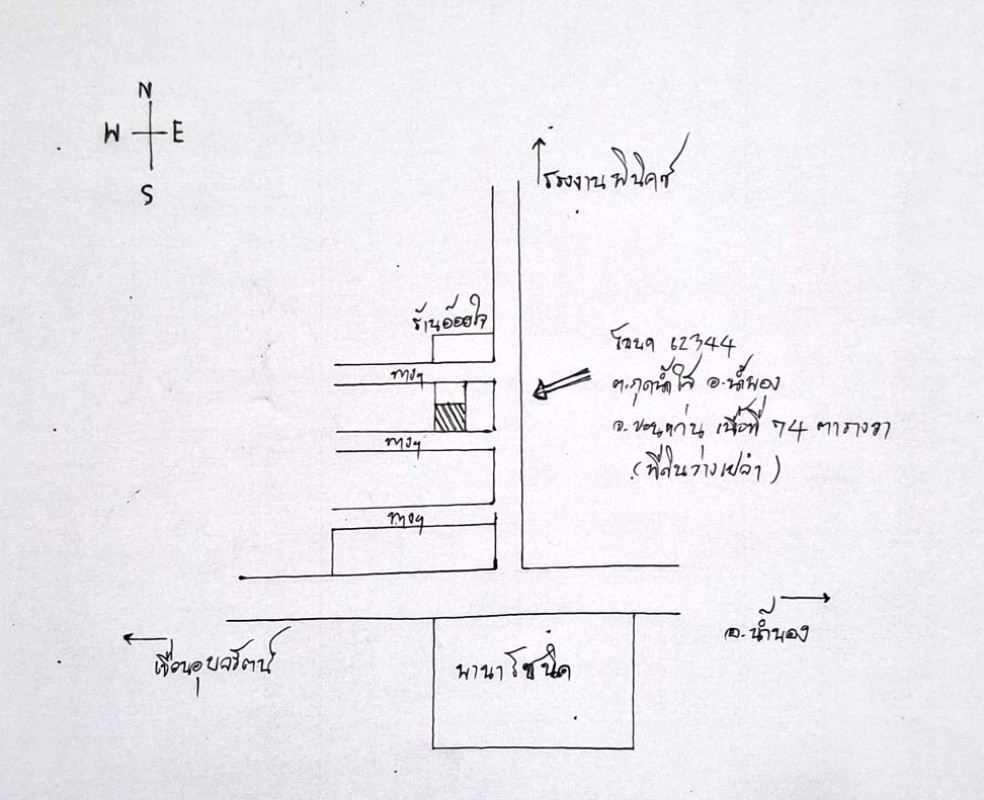 N
W E
S
โรงงานฟินิคซ์
ร้านอ้อยใจ
ทางฯ
ทางฯ
ทางฯ
โฉนด 62344
ต.กุดน้ำใส อ.น้ำพอง
จ.ขอนแก่น เนื้อที่ 74 ตารางวา
(ที่ดินว่างเปล่า)
อ.น้ำพอง
เขื่อนอุบลรัตน์
พานาโซนิค